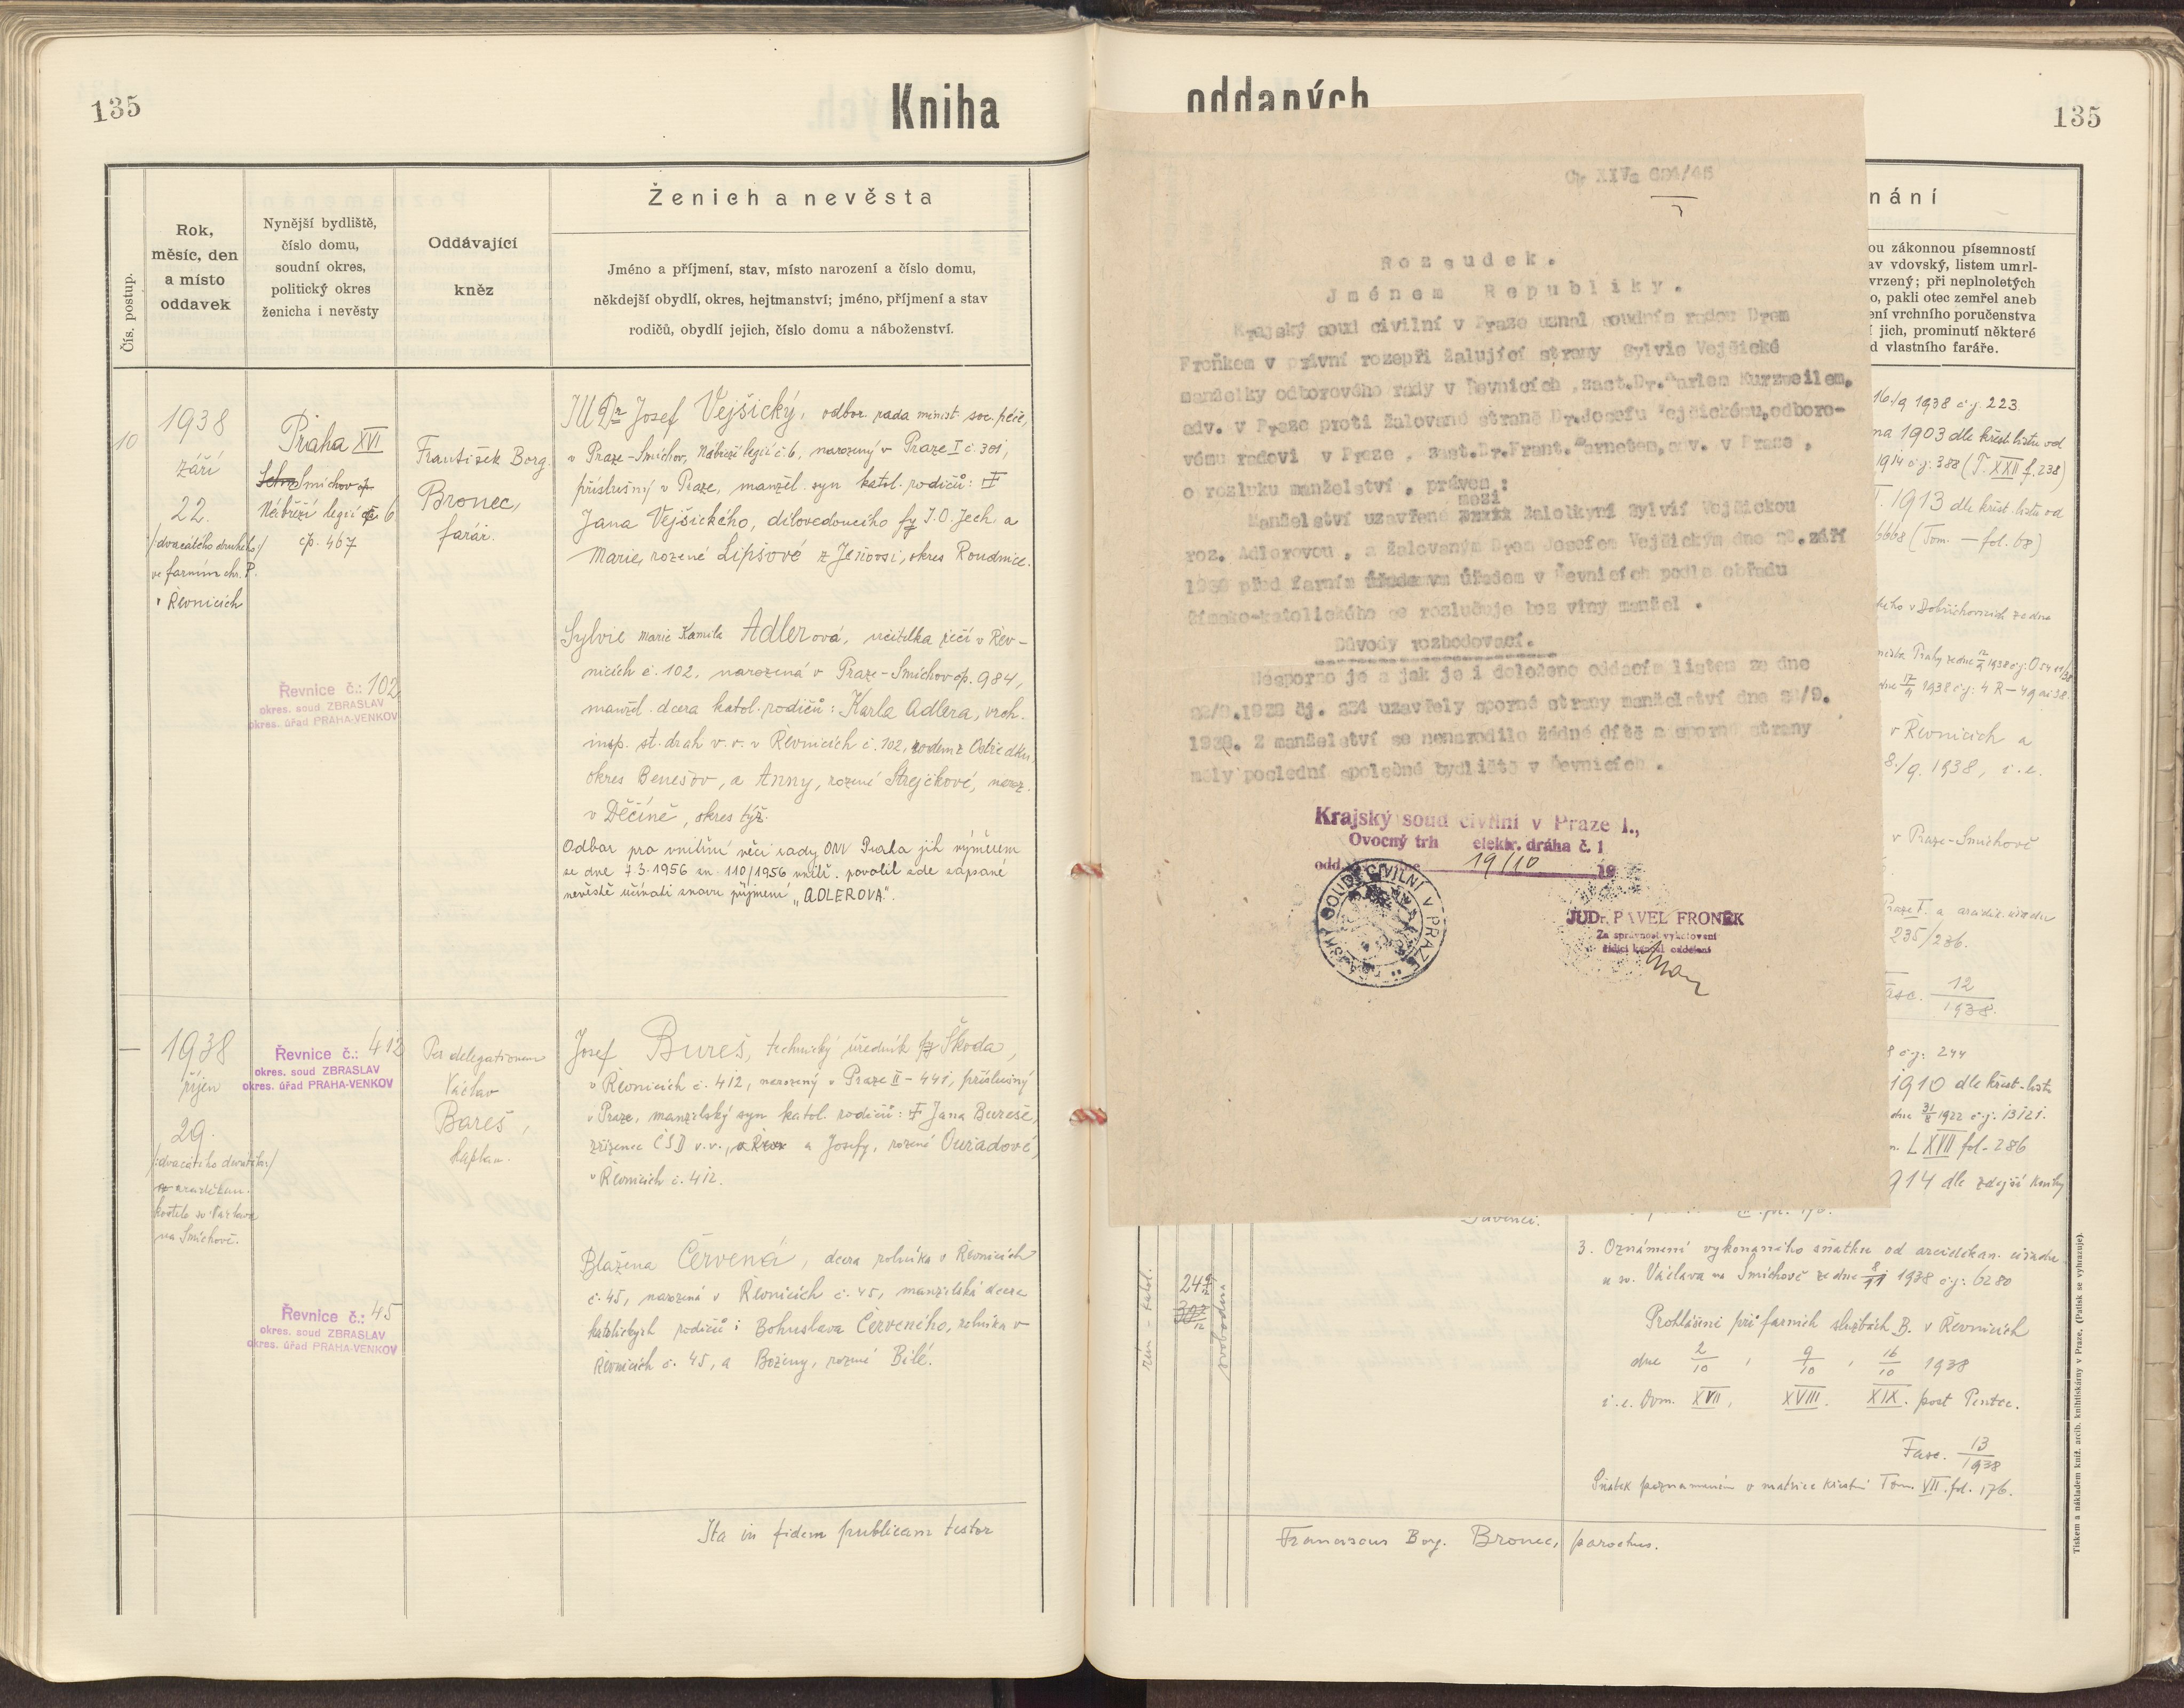 135
Kniha
oddaných
135
Čís. postup.
Rok,
měsíc, den
a místo
oddavek
Nynější bydliště,
číslo domu,
soudní okres,
politický okres
ženicha i nevěsty
Oddávající
kněz
Ženich a nevěsta
Jméno a příjmení, stav, místo narození a číslo domu,
někdejší obydlí, okres, hejtmanství; jméno, příjmení a stav
rodičů, obydlí jejich, číslo domu a náboženství.
10
1938
září
22.
/:dvacátého druhého:/
ve farním chr. P.
v Řevnicích
Praha XVI
Smíchov
Nábřeží legií č. 6
čp. 467
Řevnice č.: 102
okres. soud ZBRASLAV
okres. úřad PRAHA-VENKOV
František Borg.
Bronec,
farář.
JUDr Josef Vejšický, odbor. rada minist. soc. péče,
v Praze-Smíchov, Nábřeží legií č. 6, narozený v Praze I č. 301,
příslušný v Praze, manžel. syn katol. rodičů: †
Jana Vejšického, dílovedoucího fy J.O. Jech a
Marie, rozené Lipšové z , okres Roudnice.
Sylvie Marie Kamila Adlerová, učitelka řečí v Řev-
nicích č. 102, narozená v Praze-Smíchov čp. 984,
manžel. dcera katol. rodičů: Karla Adlera, vrch.
insp. st. drah v. v. v Řevnicích č. 102, rodem z Ostředku,
okres Benešov, a Anny, rozené Strejčkové, naroz.
v Děčíně, okres týž.
Odbor pro vnitřní věci rady ONV Praha jih výměrem
ze dne 7.3.1956 zn. 110/1956 vnitř. povolil zde zapsané
nevěstě užívati znovu příjmení „ADLEROVÁ".
1938
říjen
29.
/:dvacátého devátého:/
v arciděkan.
kostele sv. Václava
na Smíchově.
Řevnice č.: 412
okres. soud ZBRASLAV
okres. úřad PRAHA-VENKOV
Řevnice č.: 45
okres. soud ZBRASLAV
okres. úřad PRAHA-VENKOV
Per delegationem
Václav
Bareš,
kaplan.
Josef Bureš, technický úředník fy Škoda,
v Řevnicích č. 412, narozený v Praze II-441, příslušný
v Praze, manželský syn katol. rodičů: † Jana Bureše,
zřízence ČSD v. v., a Josefy, rozené Ouřadové,
v Řevnicích č. 412.
Blažena Červená, dcera rolníka v Řevnicích
č. 45, narozená v Řevnicích č. 45, manželská dcera
katolických rodičů: Bohuslava Červeného, rolníka v
Řevnicích č. 45, a Boženy, rozené Bílé.
Ita in fidem publicam testor
Franciscus Borg. Bronec, parochus.
Ck XIVa 691/45
Rozsudek.
Jménem Republiky.
Krajský soud civilní v Praze uznal soudním radou Drem
Froňkem v právní rozepři žalující strany Sylvie Vejšické
manželky odborového rady v Řevnicích, zast.Dr.Karlem Kurzweilem,
adv. v Praze proti žalované straně Dr.Josefu Vejšickému,odboro-
vému radovi v Praze, zast.Dr.Frant. , adv. v Praze,
o rozluku manželství, právem:
mezi
Manželství uzavřené žalobkyní Sylvií Vejšickou
roz. Adlerovou, a žalovaným Drem Josefem Vejšickým dne 22.září
1938 před farním úřadem v Řevnicích podle obřadu
římsko-katolického se rozlučuje bez viny manžel.
Důvody rozhodovací.
Nesporno je a jak je i doloženo oddacím listem ze dne
22/9.1938 čj. 234 uzavřely sporné strany manželství dne 22/9.
1938. Z manželství se nenarodilo žádné dítě a sporné strany
měly poslední společné bydliště v Řevnicích.
Krajský soud civilní v Praze I.,
Ovocný trh elektr. dráha č. 1
odd. 19/10 19
KRAJSKÝ SOUD CIVILNÍ V PRAZE
JUDr. PAVEL FRONĚK
Za správnost vyhotovení
řídící kancel. oddělení
nání
ou zákonnou písemností
av vdovský, listem umrl-
vrzený; při neplnoletých
o, pakli otec zemřel aneb
ení vrchního poručenstva
í jich, prominutí některé
d vlastního faráře.
16./9 1938 č.j. 223.
na 1903 dle křest. listu od
1914 č.j. 388 (T. XXII f. 238)
1913 dle křest. listu od
6668 (Tom. — fol. 68)
v Dobřichovicích ze dne
Prahy ze dne 1938 č.j.
1938 č.j. 4 R - 49
v Řevnicích a
8./9. 1938, i. e.
v Praze-Smíchově
Praze I. a arciděk. úřadu
235/236.
Fasc. 12/1938.
č.j. 244
1910 dle křest. listu
dne 31/8 1922 č.j. 13121.
LXVII fol. 286
914 dle zdejší knihy
řím - katol.
24
svobodna
3. Oznámení vykonaného sňatku od arciděkan. úřadu
u sv. Václava na Smíchově ze dne 8/11 1938 č.j. 6280
Prohlášení při farních službách B. v Řevnicích
dne 2/10, 9/10, 16/10 1938
i. e. Dom. XVII, XVIII. XIX. post Pentec.
Fasc. 13/1938
Sňatek poznamenán v matrice křestní Tom. VII. fol. 176.
Tiskem a nákladem kníž. arcib. knihtiskárny v Praze. (Patisk se vyhrazuje).